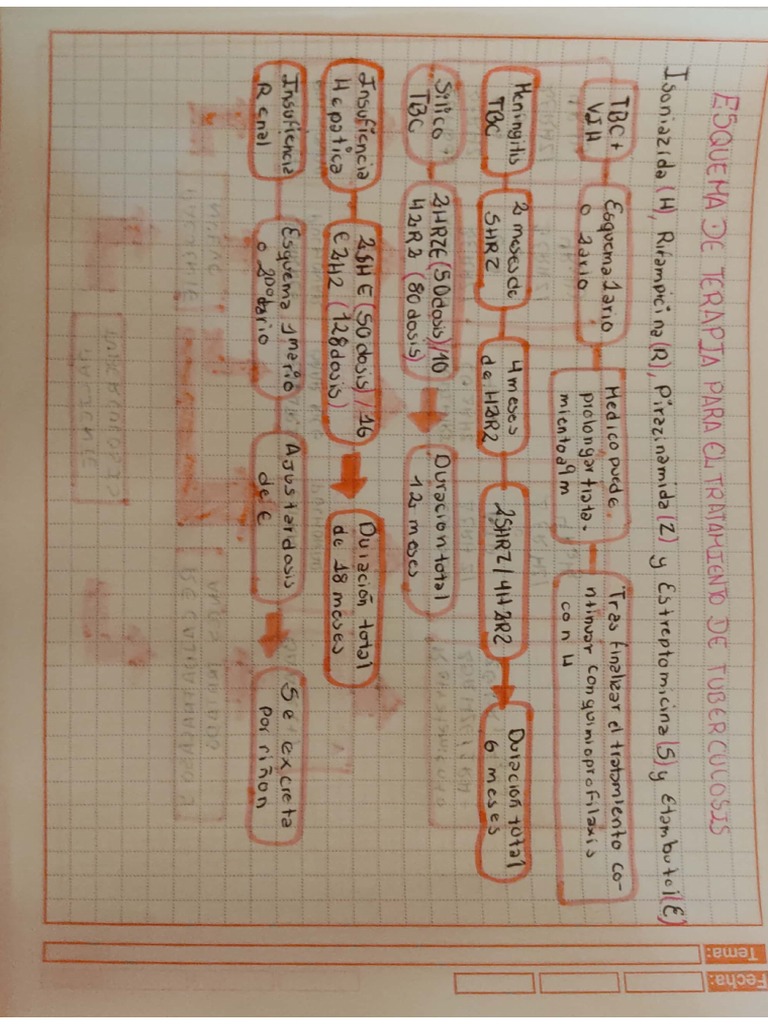 ESQUEMA DE TERAPIA PARA EL TRATAMIENTO DE TUBERCULOSIS
Isoniazida (H), Rifampicina (R), Pirazinamida (Z) y Estreptomicina (S) y Etambutol (E)
TBC +
VIH
Esquema 1ario
o 2ario
Medico puede
prolongar trata-
miento a 9m
Tras finalizar el tratamiento co-
ntinuar con quimioprofilaxis
con H
Meningitis
TBC
2 meses de
SHRZ
4 meses
de H2R2
2SHRZ/4H2R2
Duracion total
6 meses
Silico
TBC
2HRZE (50dosis)/10
H2R2 (80 dosis)
Duracion total
12 meses
Insuficiencia
Hepatica
2SHE (50 dosis)/16
E2H2 (128 dosis)
Duración total
de 18 meses
Insuficiencia
Renal
Esquema 1mario
o 2dario
Ajustar dosis
de E
Se excreta
por riñon
Tema:
Fecha: